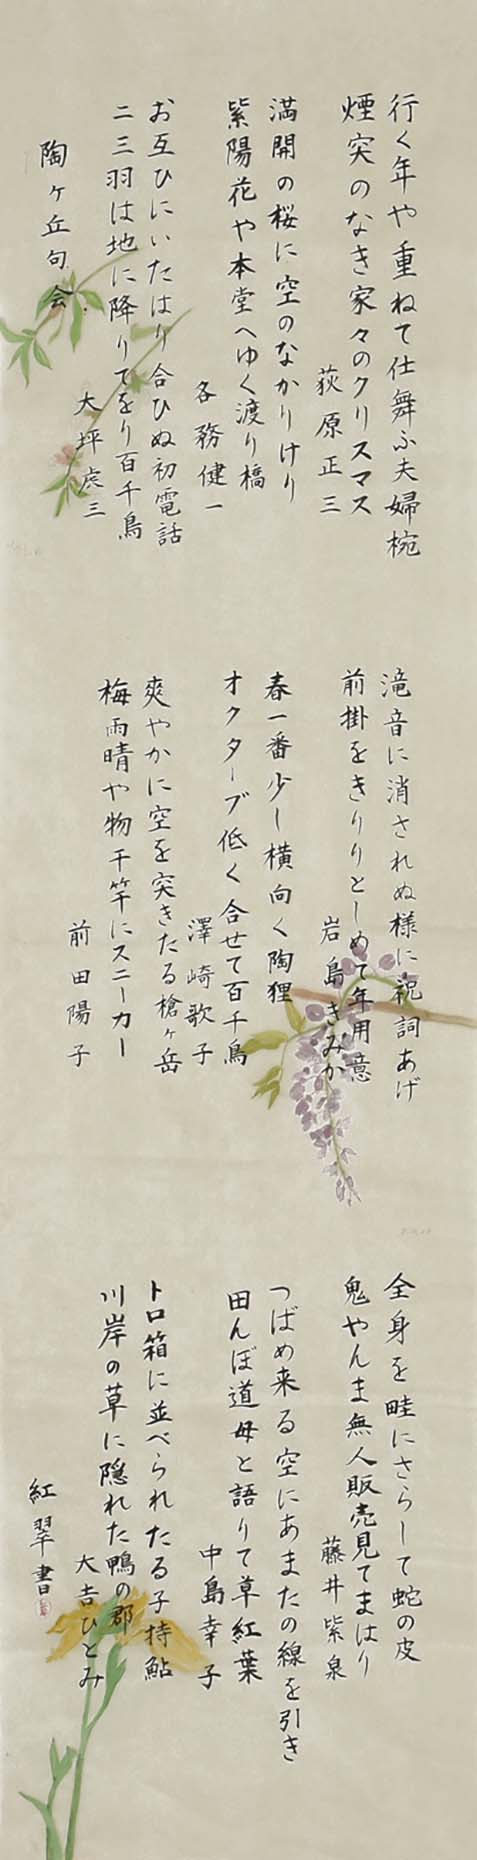 行く年や重ねて仕舞ふ夫婦椀
煙突のなき家々のクリスマス
荻原正三
満開の桜に空のなかりけり
紫陽花や本堂へゆく渡り橋
各務健一
お互ひにいたはり合ひぬ初電話
二三羽は地に降りてをり百千鳥
大坪虎三
陶ヶ丘句会
滝音に消されぬ様に祝詞あげ
前掛をきりりとしめて年用意
岩島きみか
春一番少し横向く陶狸
オクターブ低く合せて百千鳥
澤崎歌子
爽やかに空を突きたる槍ヶ岳
梅雨晴や物干竿にスニーカー
前田陽子
全身を畦にさらして蛇の皮
鬼やんま無人販売見てまはり
藤井紫泉
つばめ来る空にあまたの線を引き
田んぼ道母と語りて草紅葉
中島幸子
トロ箱に並べられたる子持鮎
川岸の草に隠れた鴨の郡
大吉ひとみ
紅翠書